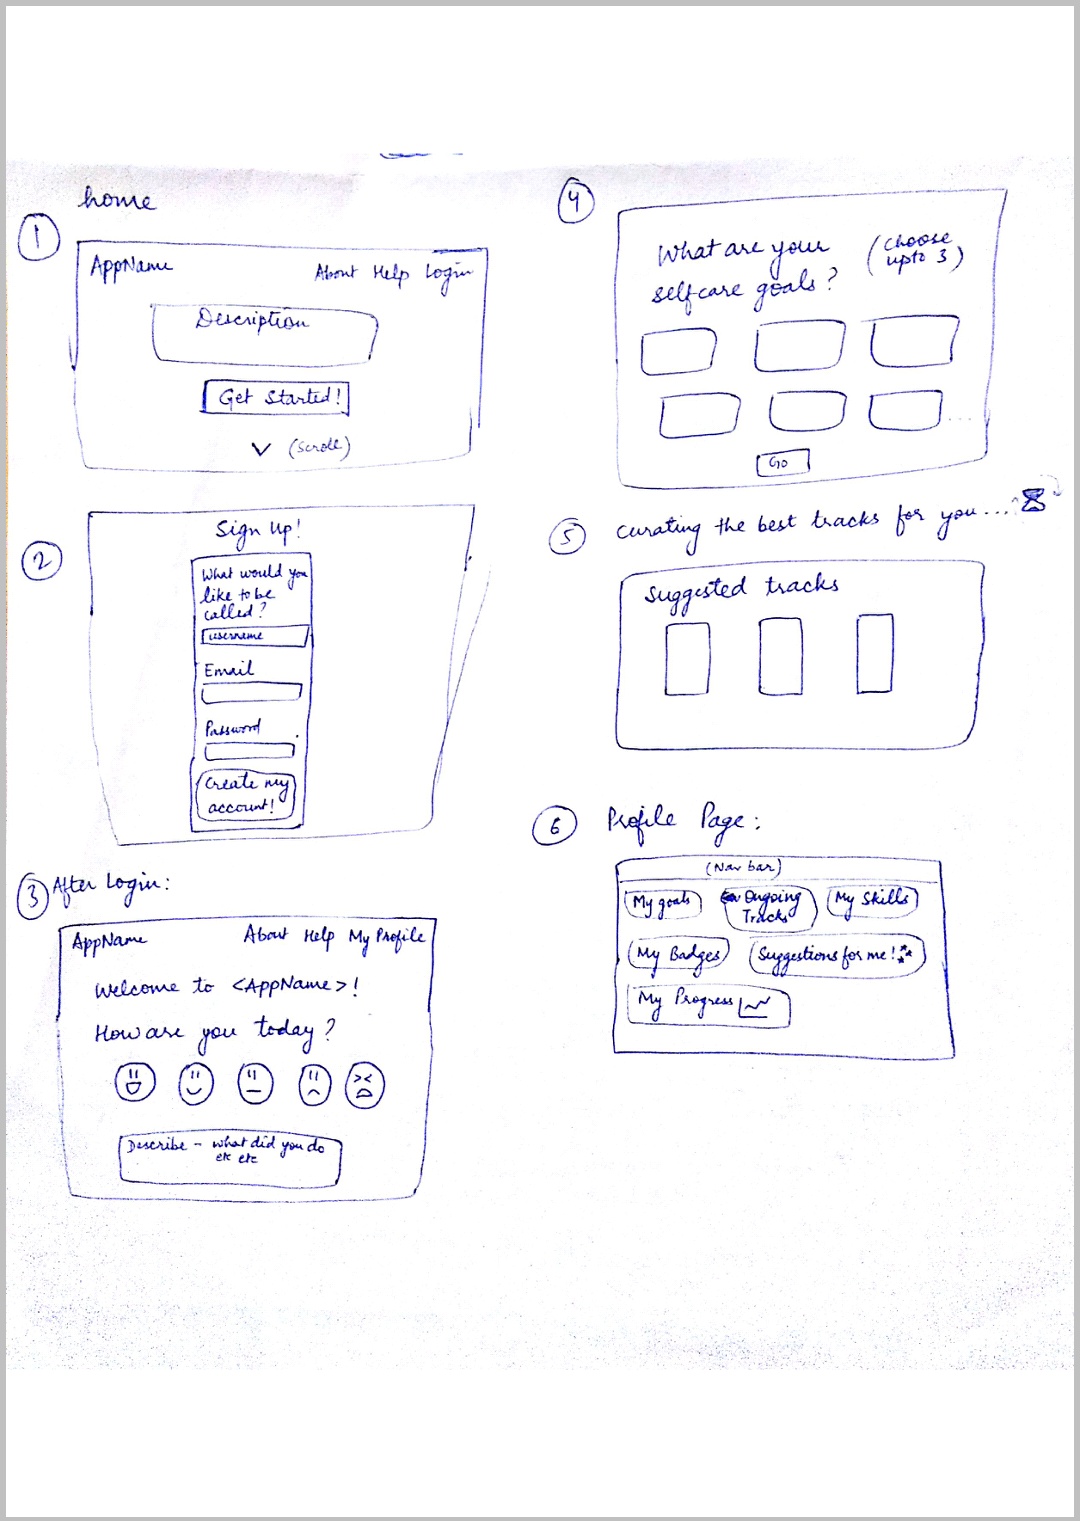 home
1
AppName About Help Login
Description
Get Started!
(Scroll)
2
Sign Up!
What would you
like to be
called?
username
Email
Password
Create my
account!
3 After Login:
AppName About Help My Profile
Welcome to <AppName>!
How are you today?
Describe - what did you do
etc etc
4
What are your (Choose
selfcare goals? upto 3)
....
Go
5 Curating the best tracks for you...
Suggested tracks
6 Profile Page:
(Nav bar)
My goals Ongoing
Tracks My Skills
My Badges Suggestions for me!
My Progress